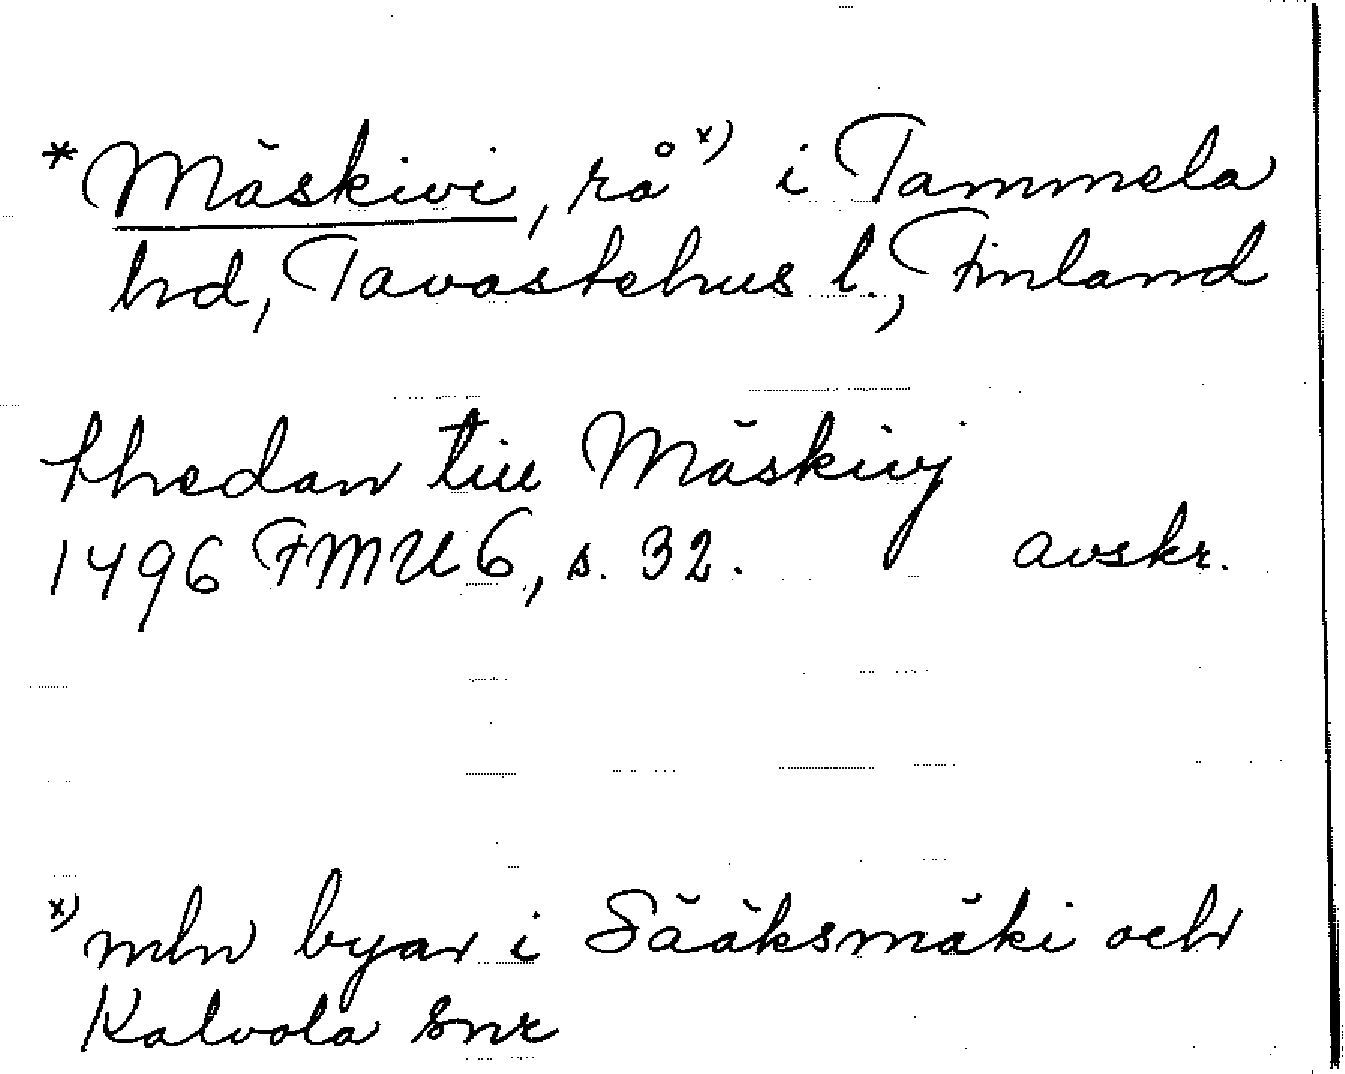 *Mäskivi, rå x) i Tammela
hd, Tavastehus l., Finland
thedan till Mäskivj
1496 FMU 6, s. 32. avskr.
x) mln byar i Sääksmäki och
Kalvola snr